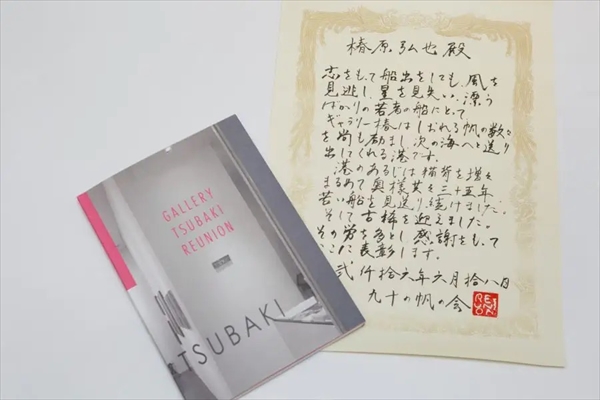 GALLERY
TSUBAKI
REUNION
TSUBAKI
椿原弘也殿
志をもって船出をしても、風を
見逃し、星を見失い、漂う
ばかりの若者の船にとって
ギャラリー椿は しおれる帆の数々
を尚も励まし、次の海へと送り
出してくれる港です。
港のあるじは猫背を増々
まるめて奥様共々三十五年
若い船を見送り続けました。
そして古稀を迎えました。
その労を多とし感謝をもって
ここに表彰します。
弐仟拾六年六月拾八日
九十の帆の会